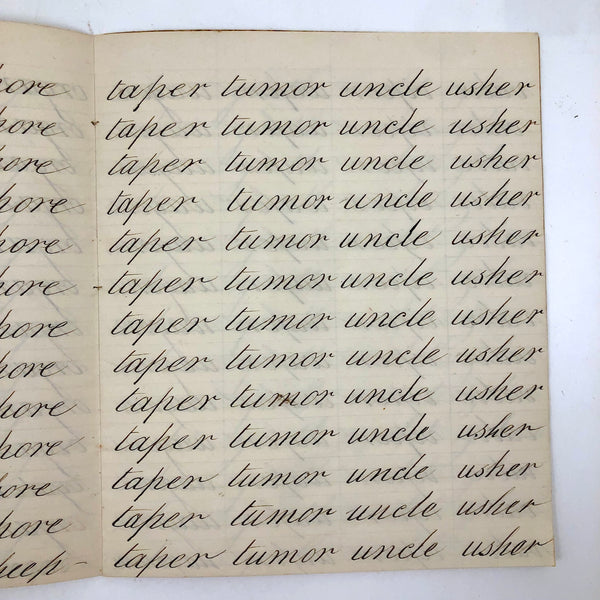 taper tumor uncle usher
taper tumor uncle usher
taper tumor uncle usher
taper tumor uncle usher
taper tumor uncle usher
taper tumor uncle usher
taper tumor uncle usher
taper tumor uncle usher
taper tumor uncle usher
taper tumor uncle usher
taper tumor uncle usher
taper tumor uncle usher
taper tumor uncle ushor